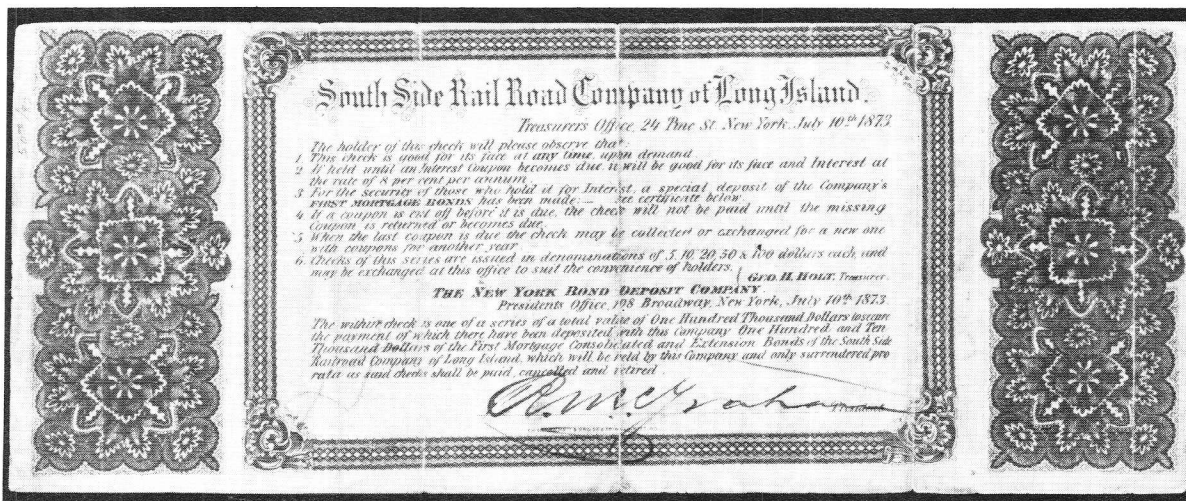 South Side Rail Road Company of Long Island.
Treasurers Office, 24 Pine St. New York, July 10th 1873.
The holder of this check will please observe that:
1 This check is good for its face at any time, upon demand
2 If held until an Interest Coupon becomes due it will be good for its face and Interest at
the rate of 8 per cent per annum
3 For the security of those who hold it for Interest, a special deposit of the Company's
FIRST MORTGAGE BONDS has been made:— see certificate below.
4 If a coupon is cut off before it is due, the check will not be paid until the missing
Coupon is returned or becomes due
5 When the last coupon is due the check may be collected or exchanged for a new one
with coupons for another year
6. Checks of this series are issued in denominations of 5, 10, 20, 50 & 100 dollars each and
may be exchanged at this office to suit the convenience of holders.
GEO. H. HOLT, Treasurer.
THE NEW YORK BOND DEPOSIT COMPANY
Presidents Office, 198 Broadway, New York, July 10th 1873.
The within check is one of a series of a total value of One Hundred Thousand Dollars to secure
the payment of which there have been deposited with this Company One Hundred and Ten
Thousand Dollars of the First Mortgage Consolidated and Extension Bonds of the South Side
Railroad Company of Long Island, which will be held by this Company and only surrendered pro
rata as said checks shall be paid, cancelled and retired.
R. McC. Graham President